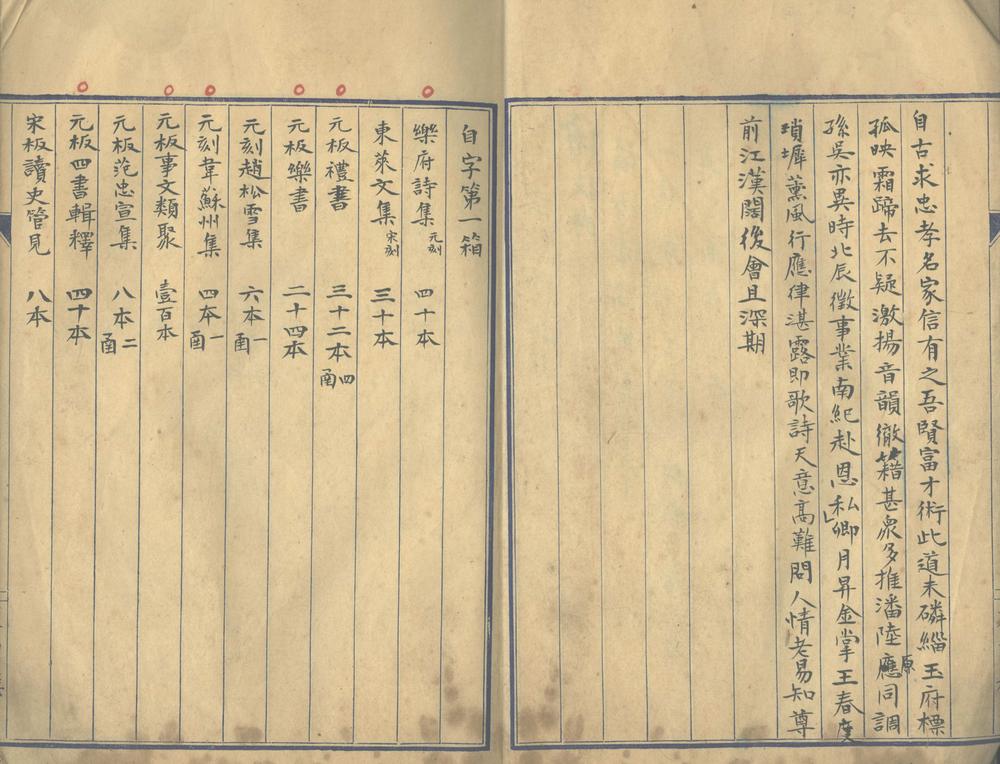 自古求忠孝名家信有之吾賢富才術此道未磷緇玉府標
孤映霜蹄去不疑激揚音韻徹籍甚衆多推潘陸應原同調
孫吳亦異時北辰徵事業南紀赴恩私卿月昇金掌王春度
瑣墀薰風行應律湛露即歌詩天意高難問人情老易知尊
前江漢闊後會且深期
自字第一箱
樂府詩集元刻 四十本
東萊文集宋刻 三十本
元板禮書 三十二本四函
元板樂書 二十四本
元刻趙松雪集 六本一函
元刻韋蘇州集 四本一函
元板事文類聚 壹百本
元板范忠宣集 八本二函
元板四書輯釋 四十本
宋板讀史管見 八本